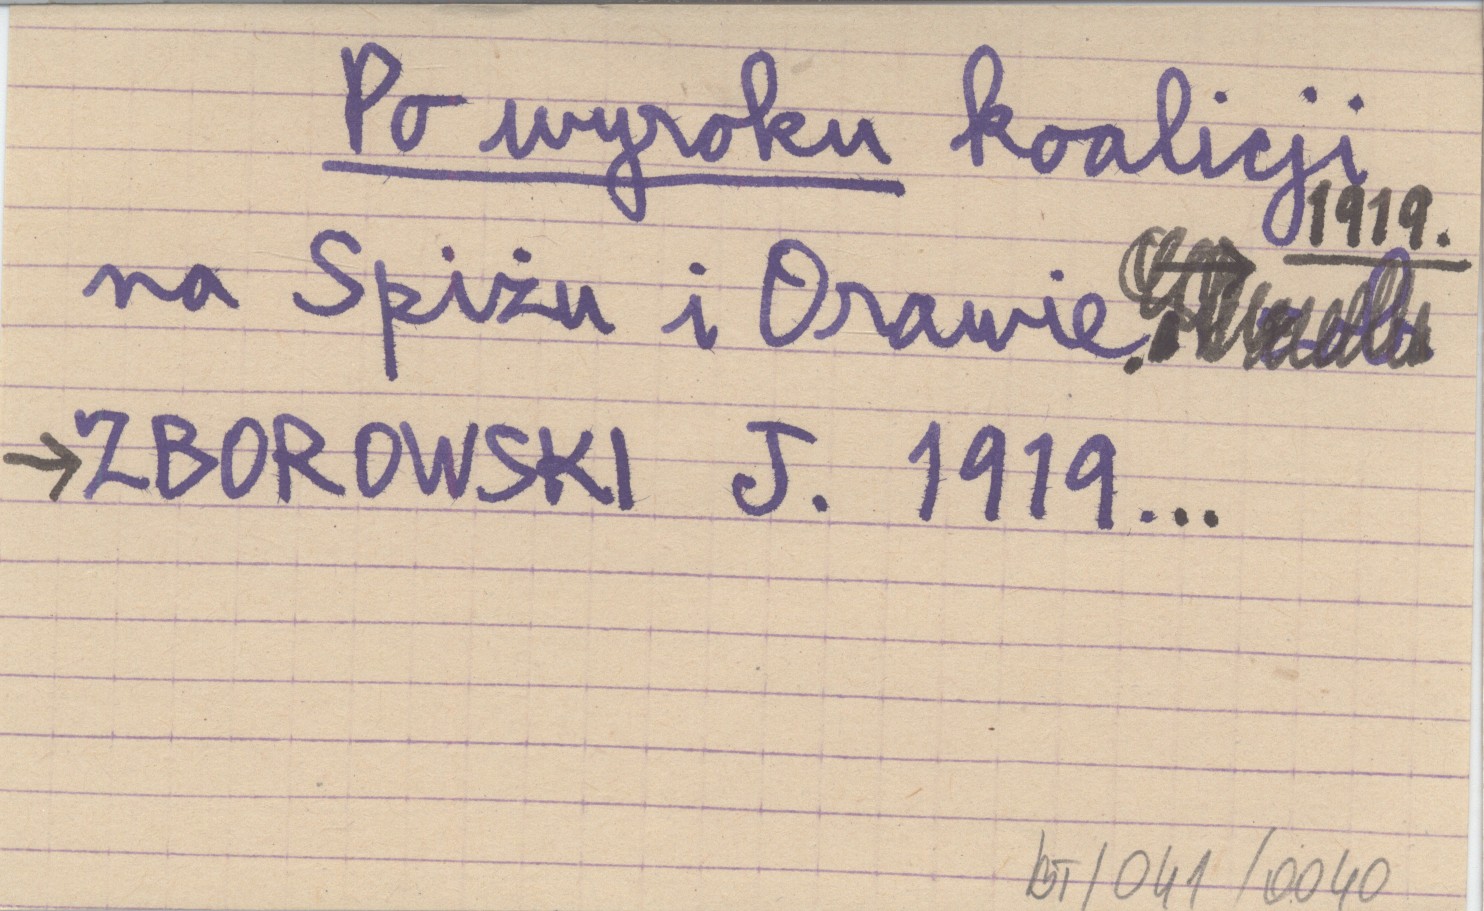 Po wyroku koalicji
na Spiżu i Orawie. 1919.
→ ZBOROWSKI J. 1919...
/041/0040